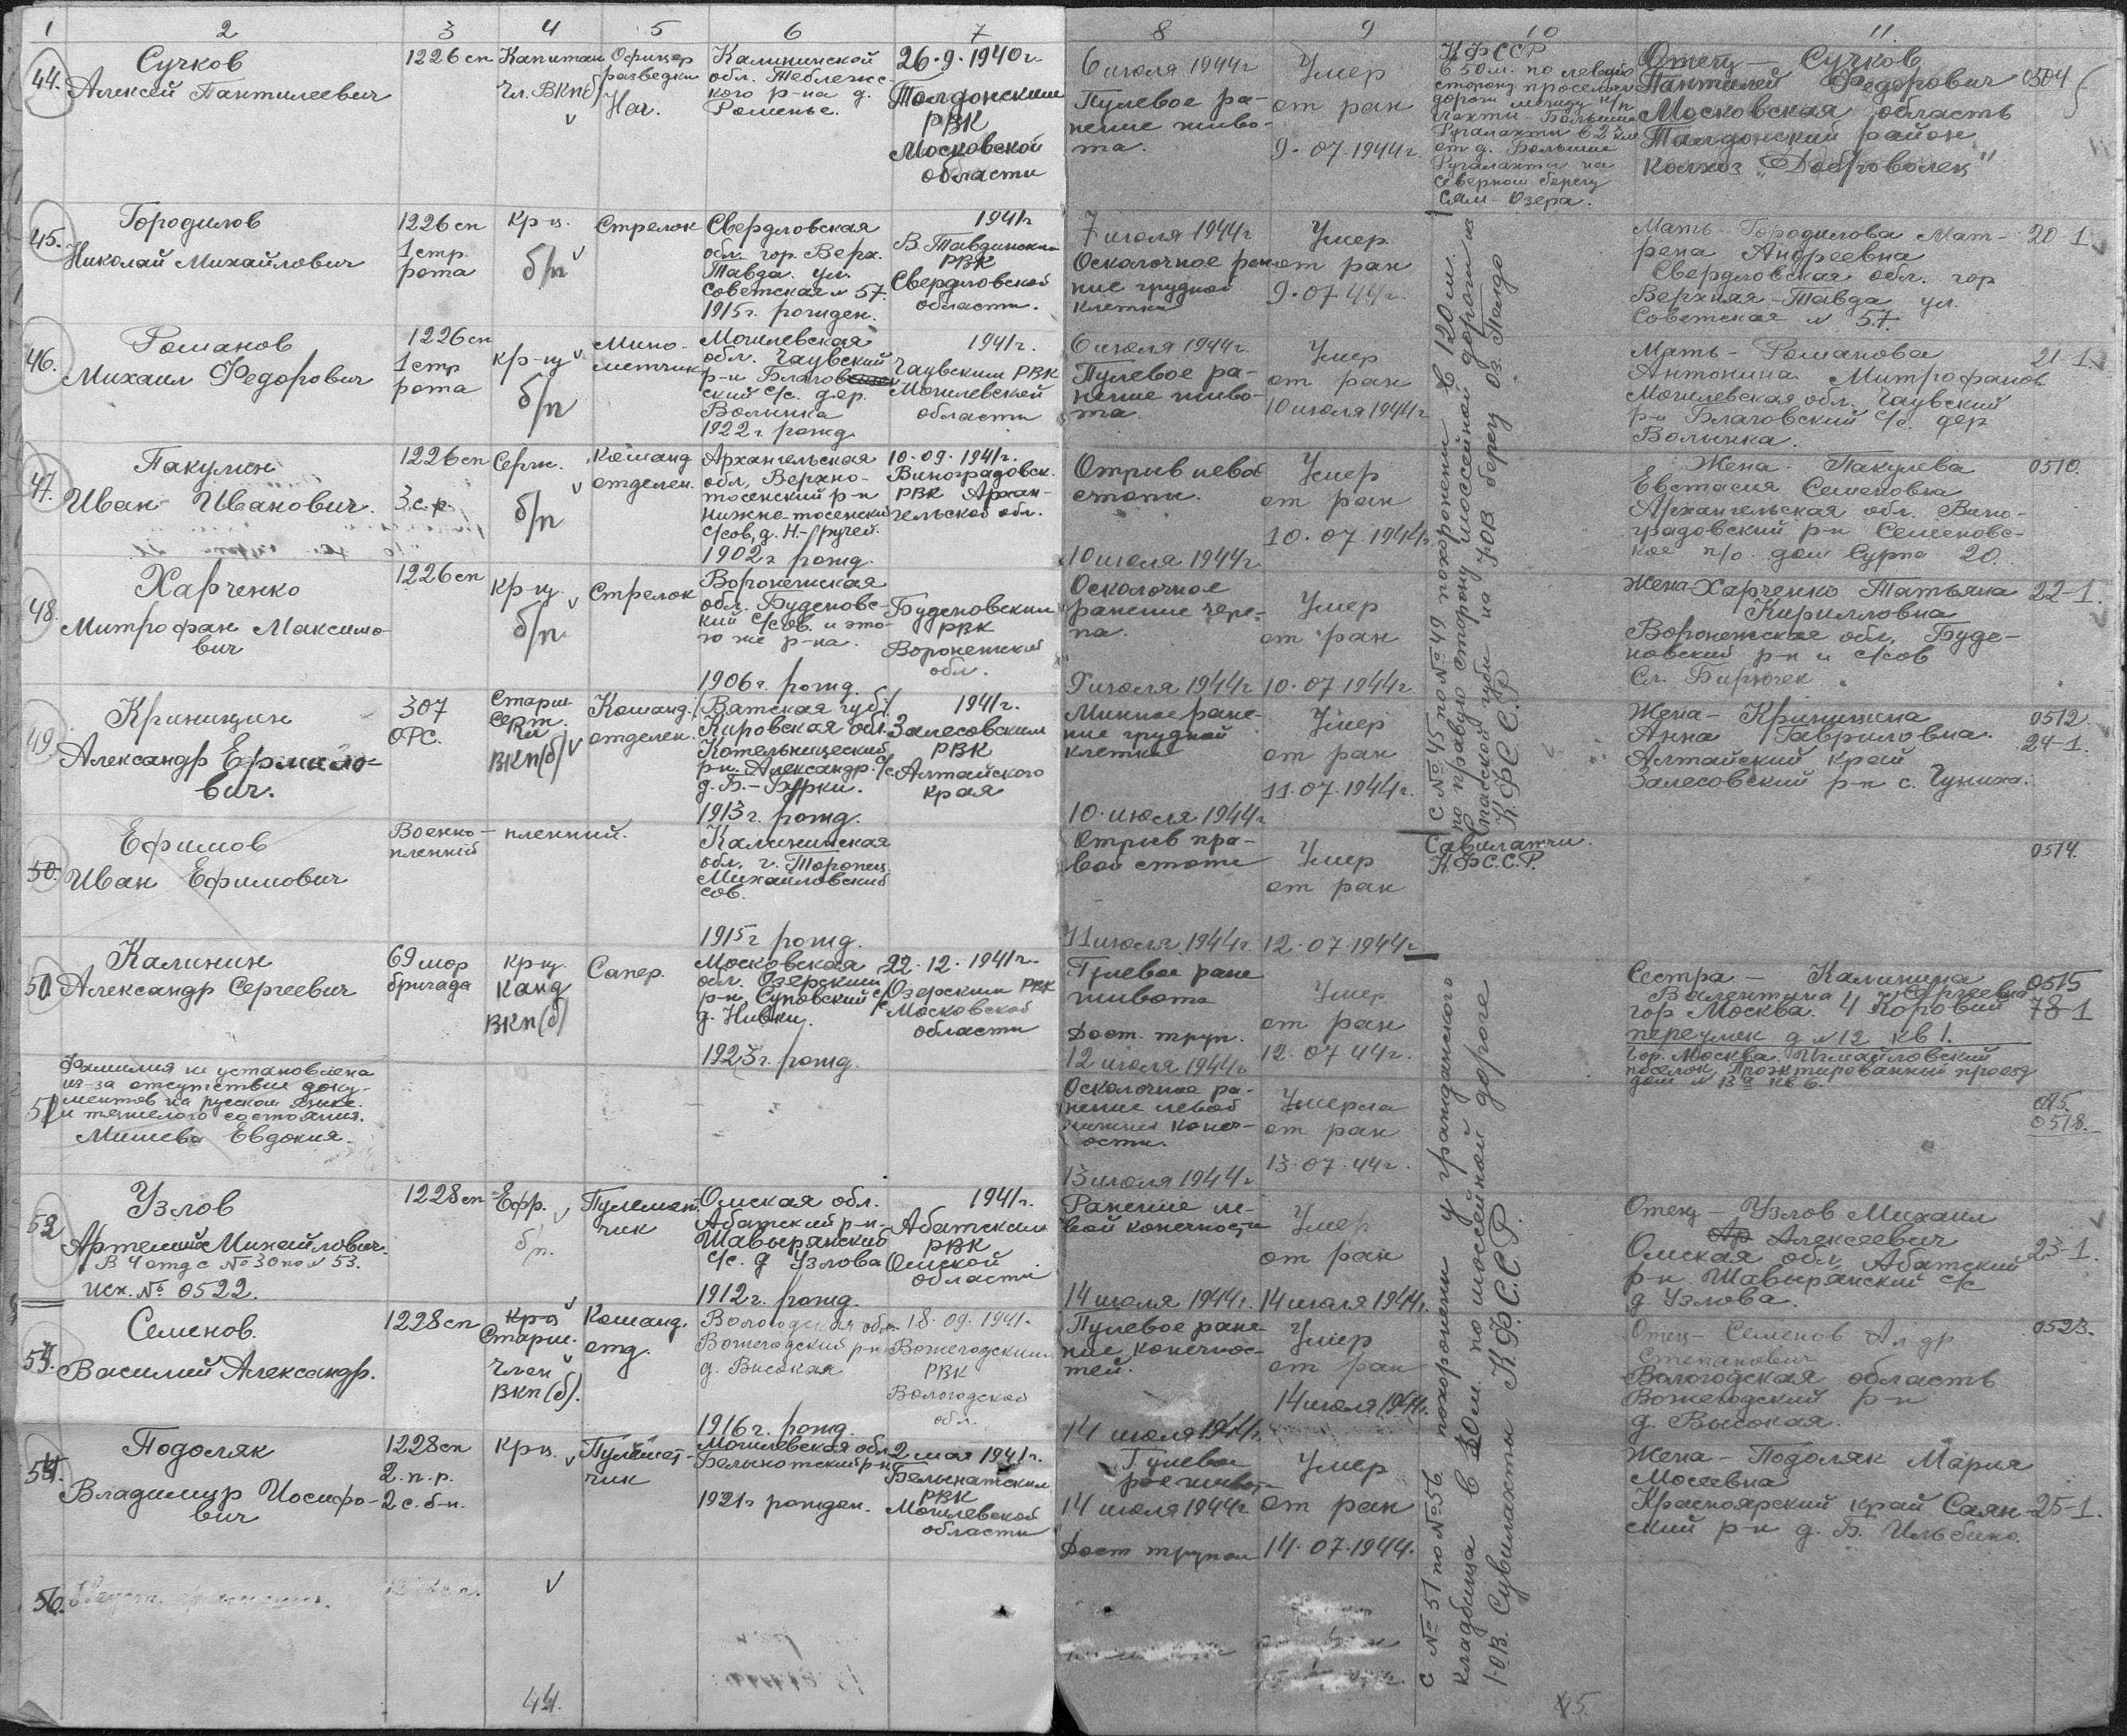 1 2 3 4 5 6 7 8 9 10 11.
44.
Сучков
Алексей Пантилеевич
1226 сп
Капитан
Чл. ВКПб
Офицер
разведки
Нач.
Калининской
обл. Теблежс-
кого р-на д.
Раменье.
26.9.1940г.
Талдонским
РВК
Московской
области
6 июля 1944г
Пулевое ра-
нение живо-
та.
Умер
от ран
9.07.1944г.
КФССР
в 50м. по левой
сторону проселоч
дороги между н/п
Большие
в 2 км
от д. Большие
на
северном берегу
Сям-Озера.
Отец — Сучков
Пантилей Федорович
Московская область
Талдонский район
колхоз „Доброволец"
0504
45.
Городилов
Николай Михайлович
1226 сп
1 стр.
рота
кр-ц.
б/п
Стрелок
Свердловская
обл. гор. Верх.
Тавда. ул.
Советская № 57.
1915г. рожден.
1941г
В. Тавдинским
РВК
Свердловской
области.
7 июля 1944г
Осколочное ран
ние грудной
клетки
Умер
от ран
9.07.44г.
Мать Городилова Мат-
рена Андреевна
Свердловская обл. гор
Верхняя-Тавда ул.
Советская № 57.
20-1
46.
Романов
Михаил Федорович
1226 сп
1 стр
рота
кр-ц
б/п
Мино-
метчик
Могилевская
обл. Чаусский
р-н Благов
ский с/с. дер.
Волынка
1922г. рожд.
1941г.
Чаусским РВК
Могилевской
области
6 июля 1944г
Пулевое ра-
нение живо-
та.
Умер
от ран
10 июля 1944г
Мать - Романова
Антонина Митрофанов
Могилевская обл. Чаусский
р-н Благовский с/с. дер
Волынка.
21-1.
47.
Пакулин
Иван Иванович.
1226 сп
3 с.р.
Серж.
б/п
Команд
отделен.
Архангельская
обл, Верхно-
тоенский р-н
Нижно-тоенский
с/сов, д. Н-/ручей.
1902г рожд.
10.09.1941г.
Виноградовск.
РВК Архан-
гельской обл.
Отрыв левой
стопы.
10 июля 1944г
Умер
от ран
10.07.1944г
Жена. Пакулева
Евстасия Семеновна
Архангельская обл. Вино-
градовский р-н Семеновс-
кое п/о. дом Сурпа 20.
0510.
48.
Харченко
Митрофан Максимо-
вич
1226 сп
кр-ц.
б/п.
Стрелок
Воронежская
обл. Буденовс-
кий с/сов. и это-
го же р-на.
1906г. рожд.
Буденовским
РВК
Воронежской
обл.
Осколочное
ранение чере-
па.
9 июля 1944г
Умер
от ран
10.07.1944г
Жена-Харченко Татьяна
Кирилловна
Воронежская обл, Буде-
новский р-н и с/сов
Сл. Бирючек
22-1.
49.
Криницин
Александр Ермило-
вич.
307
ОРС.
Старш
Серж.
чл
ВКП(б)
Команд.
отделен.
/Вятская губ./
Кировская обл.
Котельнический
р-н. Александр. с/с
д. Б.-Бурки.
1913г. рожд.
1941г.
Залесовским
РВК
Алтайского
края
Минное ране-
ние грудной
клетки
10.июля 1944г
Умер
от ран
11.07.1944г.
Жена - Криницина
Анна Гавриловна.
Алтайский край
Залесовский р-н с. Чуниха.
0512.
24-1.
С №45 по №49 похоронены в 120 м.
по правую сторону шоссейной дороги из
Спасской губы на ЮВ берегу оз. Пелдо
К.Ф.С.С.Р.
50.
Ефимов
Иван Ефимович
Военно-пленный.
пленный
Калининская
обл, г. Торопец.
Михайловский
сов.
1915г рожд.
Отрыв пра-
вой стопы
11 июля 1944г.
Умер
от ран
12.07.1944г
Савилатчи.
К.Ф.С.С.Р.
0514.
51.
Калинин
Александр Сергеевич
69 мор
бригада
кр-ц.
канд
ВКП(б)
Сапер.
Московская
обл. Озерским
р-н Суновский с/с
д. Нивки.
1923г. рожд.
22.12.1941г.
Озерским РВК
Московской
области
Пулевое ране
живота
Дост. труп.
12 июля 1944г
Умер
от ран
12.07.44г.
Сестра — Калинина
Валентина Сергеевна
гор Москва. 4 Коровий
переулок д №12 кв 1.
Гор. Москва. Измайловский
поселок, Проэктированный проезд
дом № 3а кв 6.
0515
78-1
52
Фамилия не установлена
из-за отсутствия доку-
ментов на русском языке.
и тяжелого состояния.
Мишева Евдокия.
Осколочное ра-
нение левой
нижней конеч-
ости.
13 июля 1944г
Умерла
от ран
13.07.44г.
0518.
53
Узлов
Артемий Михайлович.
В 4 отд с №30 по № 53.
исх. № 0522.
1228 сп
Ефр.
б/п.
Пулемет.
чик
Омская обл.
Абатский р-н.
Шавырянский
с/с. д Узлова
1912г. рожд.
1941г.
Абатским
РВК
Омской
области
Ранение ле-
вой конечности
14 июля 1944г.
Умер
от ран
14 июля 1944г.
Отец - Узлов Михаил
Алексеевич
Омская обл, Абатский
р-н. Шавырянский с/с
д Узлова.
23-1.
54.
Семенов.
Василий Александр.
1228 сп
Старш.
Член
ВКП(б).
Команд.
отд.
Вологодская обл.
Вожегодский р-н
д. Высокая
1916г. рожд.
18.09.1941.
Вожегодским
РВК
Вологодской
обл.
Пулевое ране
ние конечнос-
тей.
14 июля 1944г.
Умер
от ран
14 июля 1944г.
Отец - Семенов Ал-др
Степанович
Вологодская область
Вожегодский р-н
д. Высокая.
0523.
55.
Подоляк
Владимир Иосифо-
вич
1228 сп
2.п.р.
2 с.б-н.
Кр-ц.
Пулемет-
чик
Могилевская обл
Белыкотский р-н
1921г рожден.
2 мая 1941г.
Белынатским
РВК
Могилевской
области
Пулевое
14 июля 1944г
Дост трупом
Умер
от ран
14.07.1944.
Жена - Подоляк Мария
Мосеевна
Красноярский край Саян-
ский р-н д. Б. Ильбино.
25-1.
С №51 по №56 похоронены у гражданского
кладбища в 30 м. по шоссейной дороге
Ю.В. Сувилахта К.Ф.С.С.Р.
56.
44.
45.